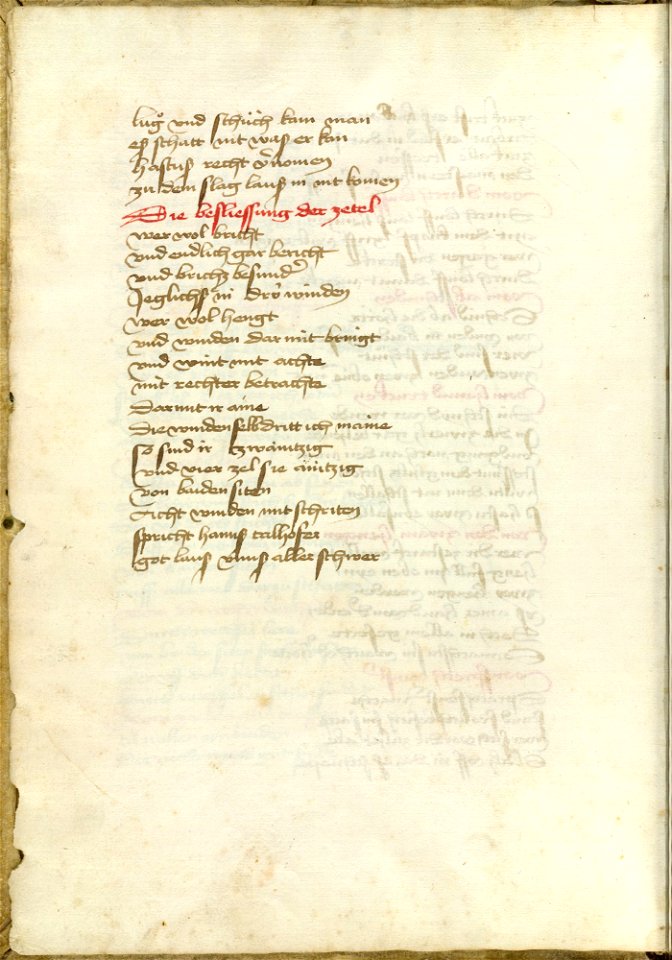 lůg vnd schüch kain man
eß schatt nit waß er kan
hastuß recht v̄nomen
zu dem slag lauß in nit komen
Die besliessung der zetel
wer wol bricht
vnd endlich gar bericht
vnd brichz besunder
Jeglichß in drÿ winden
wer wol hengt
vnd winden dar mit bringt
vnd wint mit achte
mit rechter betrachte
Dar mit ir aine
die winden selbdritt ich maine
so sind ir zwaintzig
vnd vier zel sie aintzig
von baiden siten
Aicht winden mit schriten
spricht hanns talhofer
got lauß vnnß aller schwer